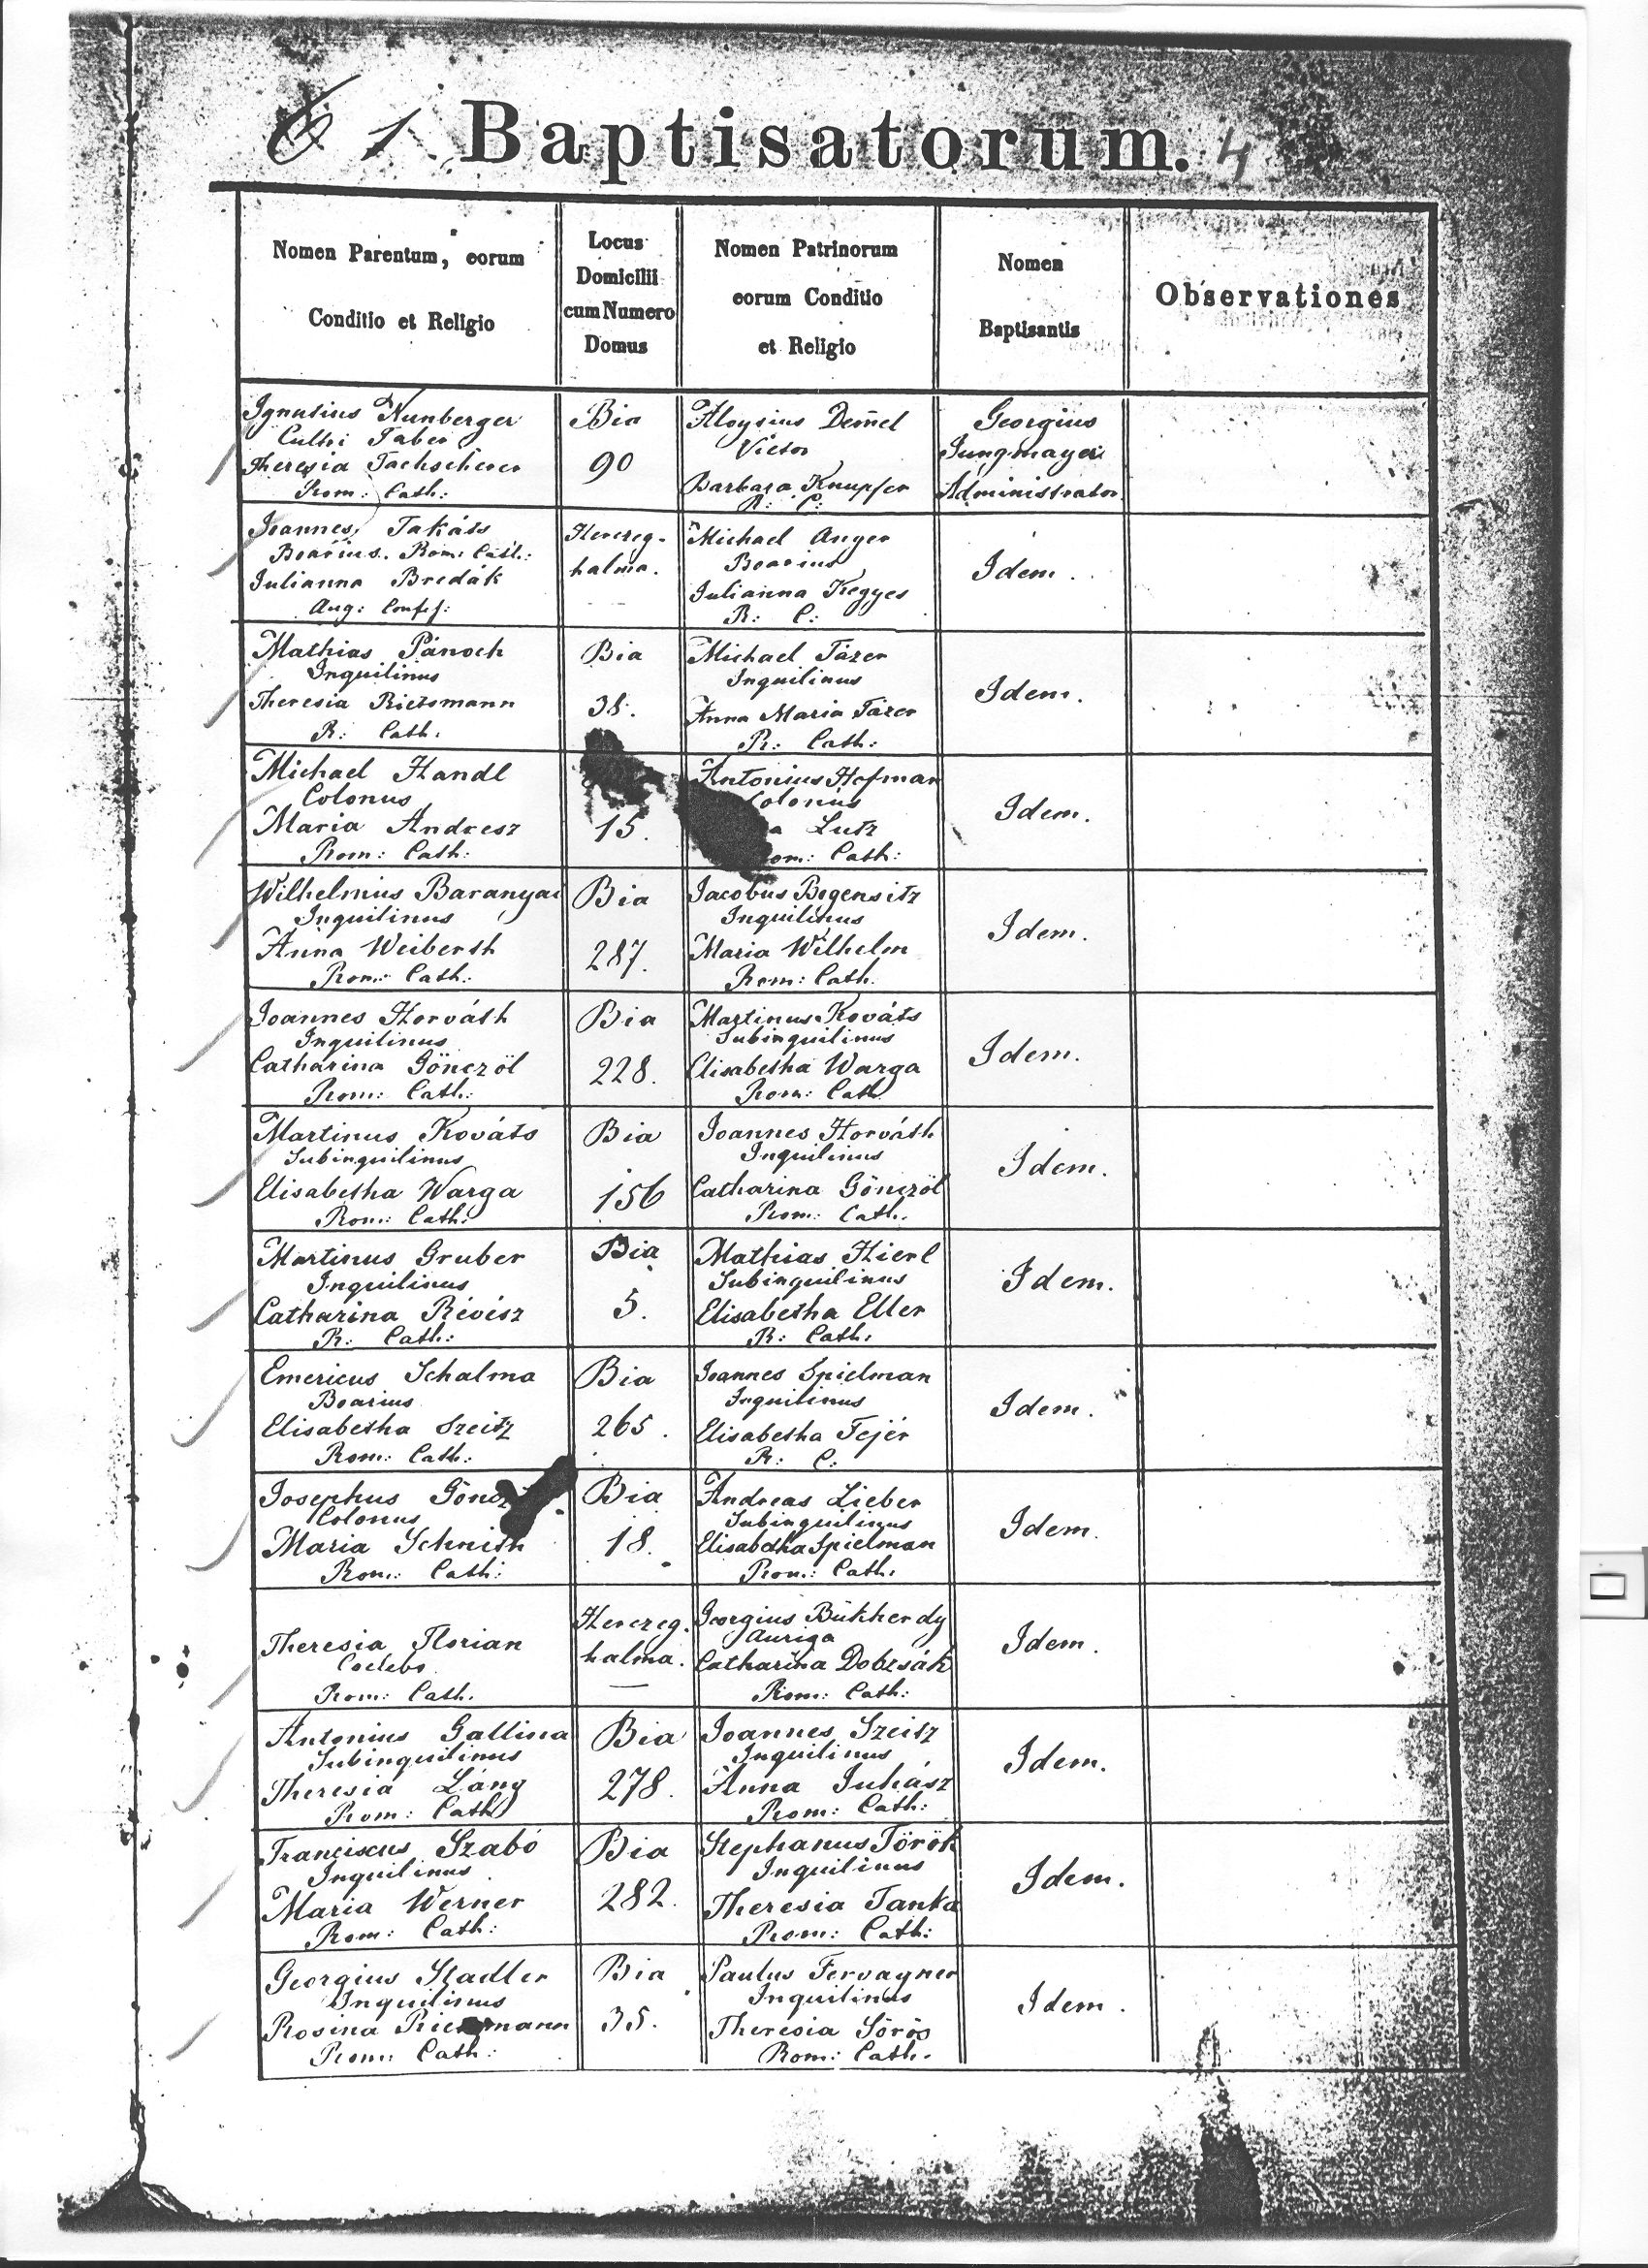 1. Baptisatorum. 4
Nomen Parentum, eorum
Conditio et Religio
Locus
Domicilii
cum Numero
Domus
Nomen Patrinorum
eorum Conditio
et Religio
Nomen
Baptisantis
Observationes
Ignatius Nunberger
Faber
Theresia Tachscherer
Rom: Cath:
Bia
90
Aloysius Dem̄el
Victor
Barbara Knupfer
R: C:
Georgius
Jungmayer
Administrator.
Joannes Takáts
Boarius. Rom: Cath:
Julianna Bredák
Aug: Conf:
Herczeg-
halma.
Michael Anger
Boarius
Julianna Kegyes
R: C:
Idem.
Mathias Pánoch
Inquilinus
Theresia Rietsmann
R: Cath.
Bia
38.
Michael Tázer
Inquilinus
Anna Maria Tázer
R: Cath:
Idem.
Michael Handl
Colonus
Maria Andresz
Rom: Cath:
15.
Antonius Hofman
Colonus
Lutz
Rom: Cath:
Idem.
Wilhelmus Baranyai
Inquilinus
Anna Weiberth
Rom: Cath:
Bia
287.
Jacobus Bogensitz
Inquilinus
Maria Wilhelm
Rom: Cath.
Idem.
Joannes Horváth
Inquilinus
Catharina Gönczöl
Rom: Cath:
Bia
228.
Martinus Kováts
Subinquilinus
Elisabetha Warga
Rom: Cath
Idem.
Martinus Kováts
Subinquilinus
Elisabetha Warga
Rom: Cath:
Bia
156
Joannes Horváth
Inquilinus
Catharina Gönczöl
Rom: Cath.
Idem.
Martinus Gruber
Inquilinus
Catharina Révész
R: Cath:
Bia
5.
Mathias Hierl
Subinquilinus
Elisabetha Eller
R: Cath.
Idem.
Emericus Schalma
Boarius
Elisabetha Szeitz
Rom: Cath:
Bia
265.
Joannes Spielman
Inquilinus
Elisabetha Fejér
R: C:
Idem.
Josephus
Colonus
Maria Schnith
Rom: Cath:
Bia
18.
Andreas Lieber
Subinquilinus
Elisabetha Spielman
Rom: Cath.
Idem.
Theresia Florian
Coelebs
Rom: Cath.
Herczeg-
halma.
Georgius Bükherdy
Auriga
Catharina Dobrsák
Rom: Cath:
Idem.
Antonius Gallina
Subinquilinus
Theresia Láng
Rom: Cath
Bia
278.
Joannes Szeitz
Inquilinus
Anna Juhász
Rom: Cath:
Idem.
Franciscus Szabó
Inquilinus
Maria Werner
Rom: Cath:
Bia
282.
Stephanus Török
Inquilinus
Theresia Tanka
Rom: Cath:
Idem.
Georgius Stadler
Inquilinus
Rosina
Rom: Cath:
Bia
35.
Paulus Fervagner
Inquilinus
Theresia Sörös
Rom: Cath.
Idem.